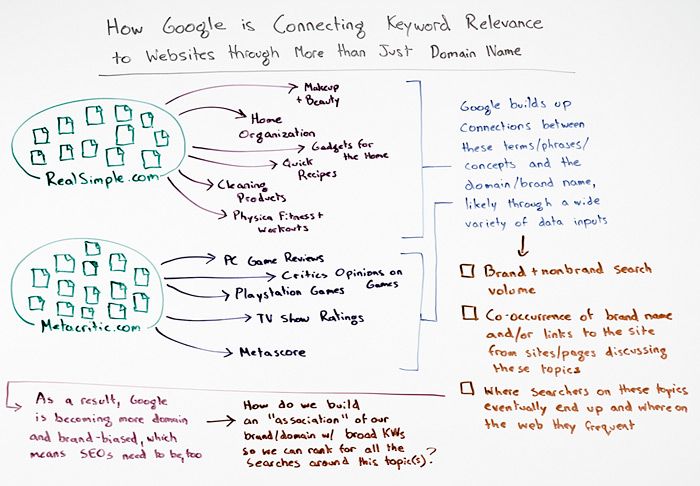 How Google is Connecting Keyword Relevance
to Websites through More than Just Domain Name
Makeup
+ Beauty
Home
Organization
Gadgets for
the Home
Quick
Recipes
Cleaning
Products
Physica Fitness +
Workouts
RealSimple.com
PC Game Reviews
Critics Opinions on
Games
Playstation Games
TV Show Ratings
Metascore
Metacritic.com
Google builds up
Connections between
these terms/phrases/
concepts and the
domain/brand name,
likely through a wide
variety of data inputs
Brand + nonbrand search
volume
Co-occurrence of brand name
and/or links to the site
from sites/pages discussing
these topics
Where searchers on these topics
eventually end up and where on
the web they frequent
As a result, Google
is becoming more domain
and brand-biased, which
means SEOs need to be, too
How do we build
an "association" of our
brand/domain w/ broad KWs
so we can rank for all the
searches around this topic(s)?